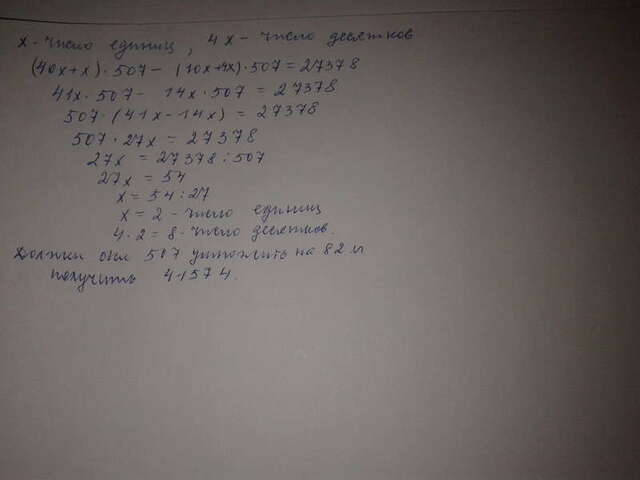 х - число единиц, 4х - число десятков
(40х+х)·507 - (10х+4х)·507 = 27378
41х·507 - 14х·507 = 27378
507·(41х-14х) = 27378
507·27х = 27378
27х = 27378:507
27х = 54
х = 54:27
х = 2 - число единиц
4·2=8 - число десятков.
Должны были 507 умножить на 82 и
получить 41574.